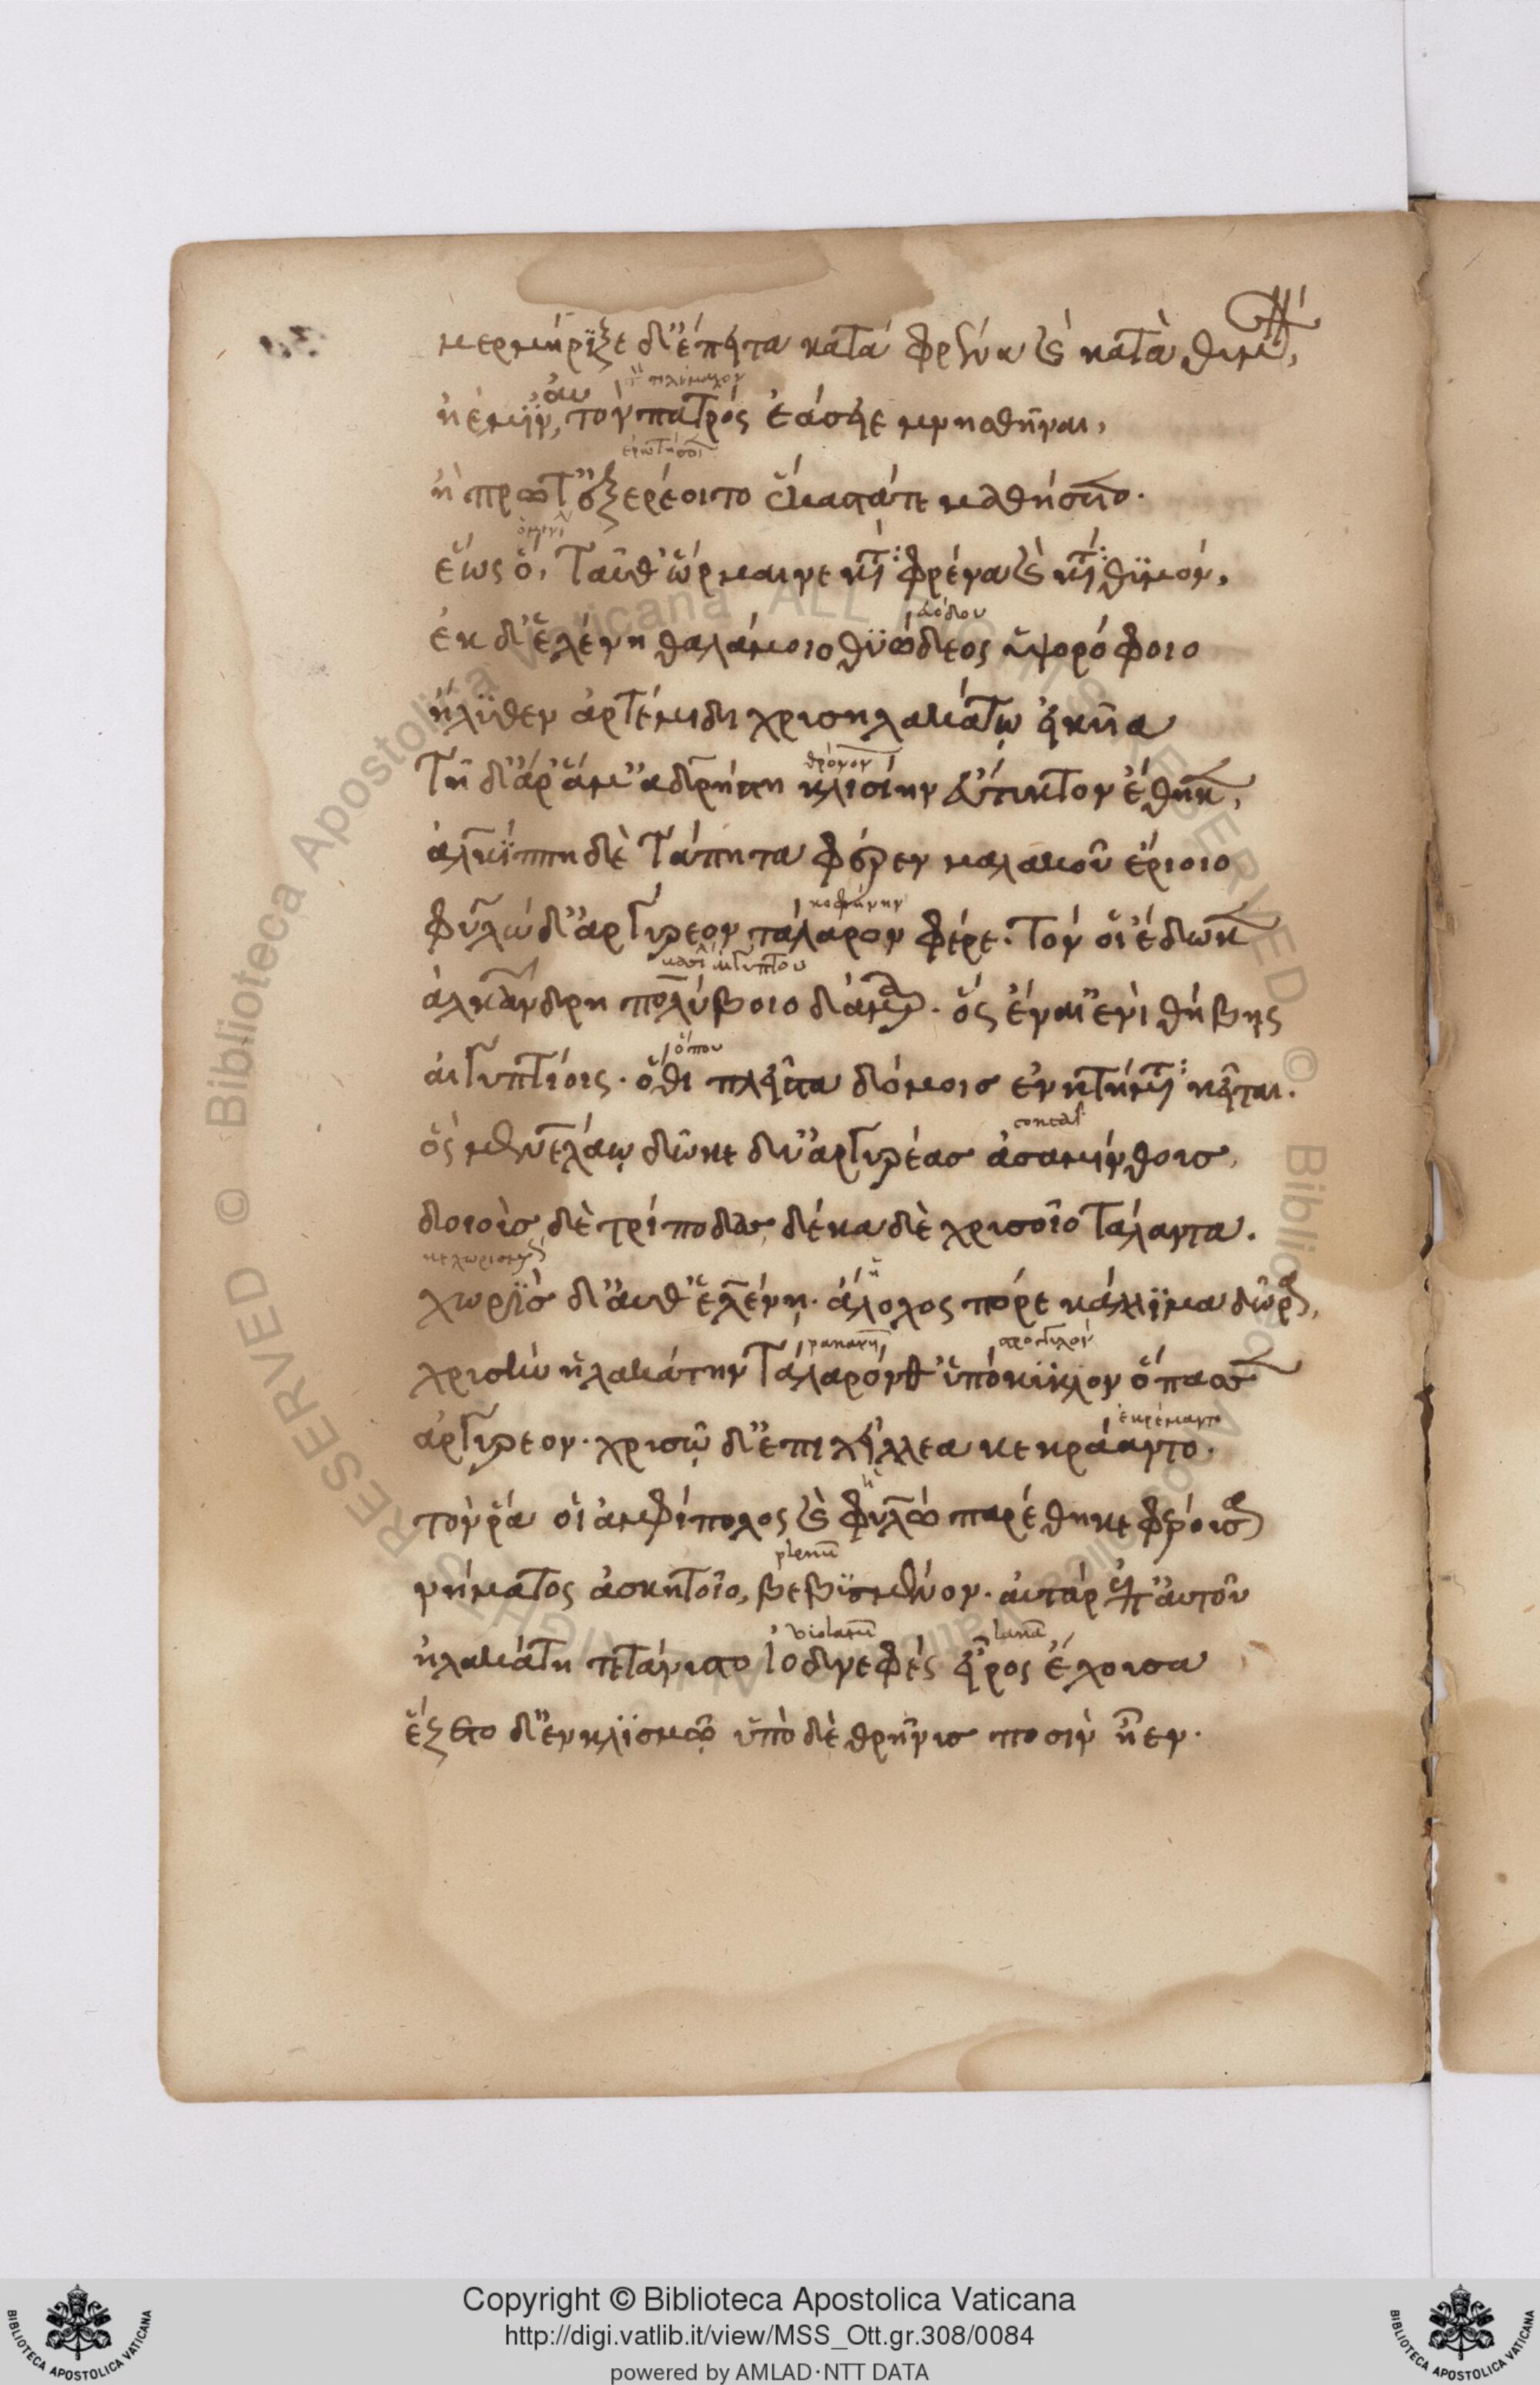 μερμήριξε δ' ἔπειτα κατὰ φρένα καὶ κατὰ θυμὸν,
ἠέ μιν αὐτὸν πατρὸς ἐάσειε μνησθῆναι,
ἢ πρῶτ' ἐξερέοιτο ἕκαστά τε μυθήσαιτο.
ἕως ὁ, ταῦθ' ὥρμαινε κατὰ φρένα καὶ κατὰ θυμόν,
ἐκ δ' ἑλένη θαλάμοιο θυώδεος ὑψορόφοιο
ἤλυθεν ἀρτέμιδι χρυσηλακάτῳ εἰκυῖα
τῇ δ' ἄρ' ἅμ' ἀδρήστη κλισίην εὔτυκτον ἔθηκεν,
ἀλκίππη δὲ τάπητα φέρεν μαλακοῦ ἐρίοιο
φυλὼ δ' ἀργύρεον τάλαρον φέρε. τόν οἱ ἔδωκεν
ἀλκάνδρη πολύβοιο δάμαρ. ὃς ἔναι' ἐνὶ θήβης
αἰγυπτίοις. ὅθι πλεῖστα δόμοισ ἐν κτήματα κεῖται.
ὃς μενελάῳ δῶκε δύ' ἀργυρέασ ἀσαμίνθουσ,
δοιοὺσ δὲ τρίποδασ, δέκα δὲ χρυσοῖο τάλαντα.
χωρὶσ δ' αὖθ' ἑλένῃ. ἄλοχος πόρε κάλλιμα δῶρα,
χρυσέην ἠλακάτην τάλαρόν θ' ὑπόκυκλον ὄπασσεν
ἀργύρεον. χρυσῷ δ' ἐπὶ χείλεα κεκράαντο.
τόν ῥά οἱ ἀμφίπολος φυλὼ παρέθηκε φέρουσα
νήματος ἀσκητοῖο, βεβυσμένον. αὐτὰρ ἐπ' αὐτοῦ
ἠλακάτη τετάνυστο ἰοδνεφὲς εἶρος ἔχουσα
ἕζετο δ' ἐν κλισμῷ ὑπὸ δὲ θρῆνυσ ποσὶν ἦεν.
Copyright © Biblioteca Apostolica Vaticana
http://digi.vatlib.it/view/MSS_Ott.gr.308/0084
powered by AMLAD·NTT DATA